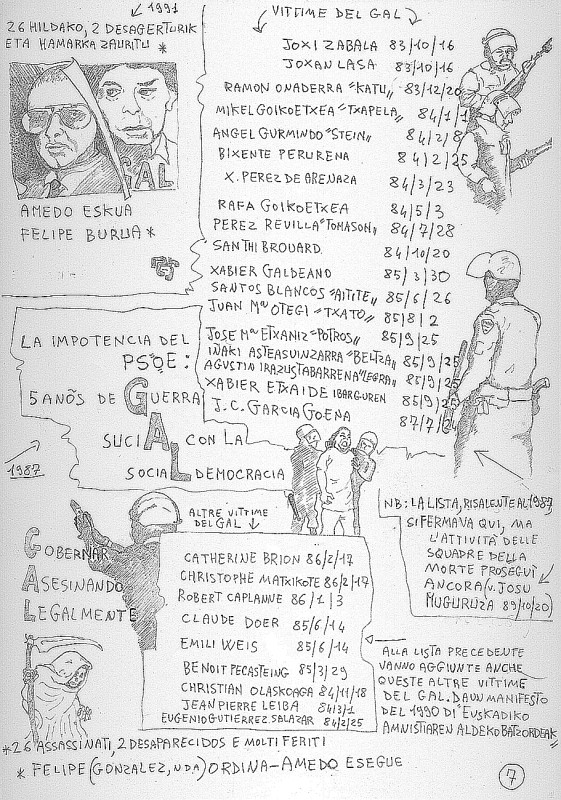 1991
26 HILDAKO, 2 DESAGERTURIK
ETA HAMARKA ZAURITU *
GAL
AMEDO ESKUA
FELIPE BURUA *
VITTIME DEL GAL
JOXI ZABALA 83/10/16
JOXAN LASA 83/10/16
RAMON ONADERRA "KATU" 83/12/20
MIKEL GOIKOETXEA "TXAPELA" 84/1/1
ANGEL GURMINDO "STEIN" 84/2/8
BIXENTE PERURENA 84/2/25
X. PEREZ DE ARENAZA 84/3/23
RAFA GOIKOETXEA 84/5/3
PEREZ REVILLA "TOMASON" 84/7/28
SANTHI BROUARD 84/10/20
XABIER GALDEANO 85/3/30
SANTOS BLANCOS "AITITE" 85/6/26
JUAN Mª OTEGI "TXATO" 85/8/2
JOSE Mª ETXANIZ "POTROS" 85/9/25
IÑAKI ASTEASUINZARRA "BELTZA" 85/9/25
AGUSTIN IRAZUSTABARRENA "LEGRA" 85/9/25
XABIER ETXAIDE IBARGUREN 85/9/25
J.C. GARCIA GOENA 87/7/24
LA IMPOTENCIA DEL
PSOE:
5 ANÕS DE GUERRA
SUCIA CON LA
SOCIAL DEMOCRACIA
1987
GOBERNAR
ASESINANDO
LEGALMENTE
ALTRE VITTIME
DEL GAL
CATHERINE BRION 86/2/17
CHRISTOPHE MATXIKOTE 86/2/17
ROBERT CAPLANNE 86/1/3
CLAUDE DOER 85/6/14
EMILI WEIS 85/6/14
BENOIT PECASTEING 85/3/29
CHRISTIAN OLASKOAGA 84/11/18
JEAN PIERRE LEIBA 84/3/1
EUGENIO GUTIERREZ SALAZAR 84/2/25
NB: LA LISTA, RISALENTE AL 1987,
SI FERMAVA QUI, MA
L'ATTIVITÀ DELLE
SQUADRE DELLA
MORTE PROSEGUÌ
ANCORA (v. JOSU
MUGURUZA 89/10/20)
ALLA LISTA PRECEDENTE
VANNO AGGIUNTE ANCHE
QUESTE ALTRE VITTIME
DEL GAL. DA UN MANIFESTO
DEL 1990 DI "EUSKADIKO
AMNISTIAREN ALDEKO BATZORDEAK"
* 26 ASSASSINATI, 2 DESAPARECIDOS E MOLTI FERITI
* FELIPE (GONZALEZ, NDA) ORDINA - AMEDO ESEGUE
7